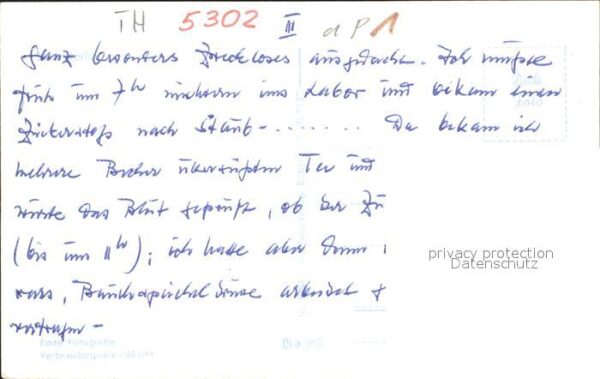 TH 5302 III a P 1
ganz besonders Zweckloses ausgedacht. Ich musste
früh um 7h nüchtern ins Labor und bekam einen
Zuckerstoß nach Staub-....... Da bekam ich
mehrere Becher übersüßten Tee und
wurde das Blut geprüft, ob der Zu
(bis um 11h); ich hatte aber dann
privacy protection
Datenschutz
vertragen -
Echte Fotografie
Verbraucherpreis -,30 DM